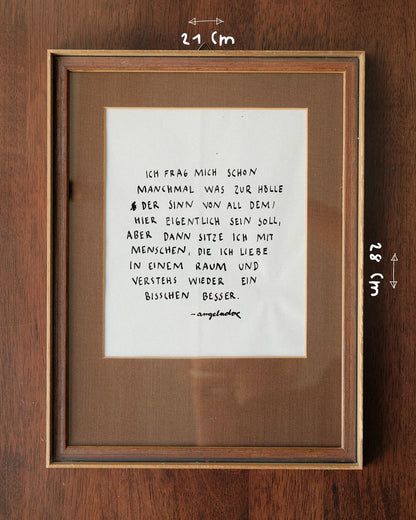 21 cm
ICH FRAG MICH SCHON
MANCHMAL WAS ZUR HÖLLE
DER SINN VON ALL DEM/
HIER EIGENTLICH SEIN SOLL,
ABER DANN SITZE ICH MIT
MENSCHEN, DIE ICH LIEBE
IN EINEM RAUM UND
VERSTEHS WIEDER EIN
BISSCHEN BESSER.
28 cm